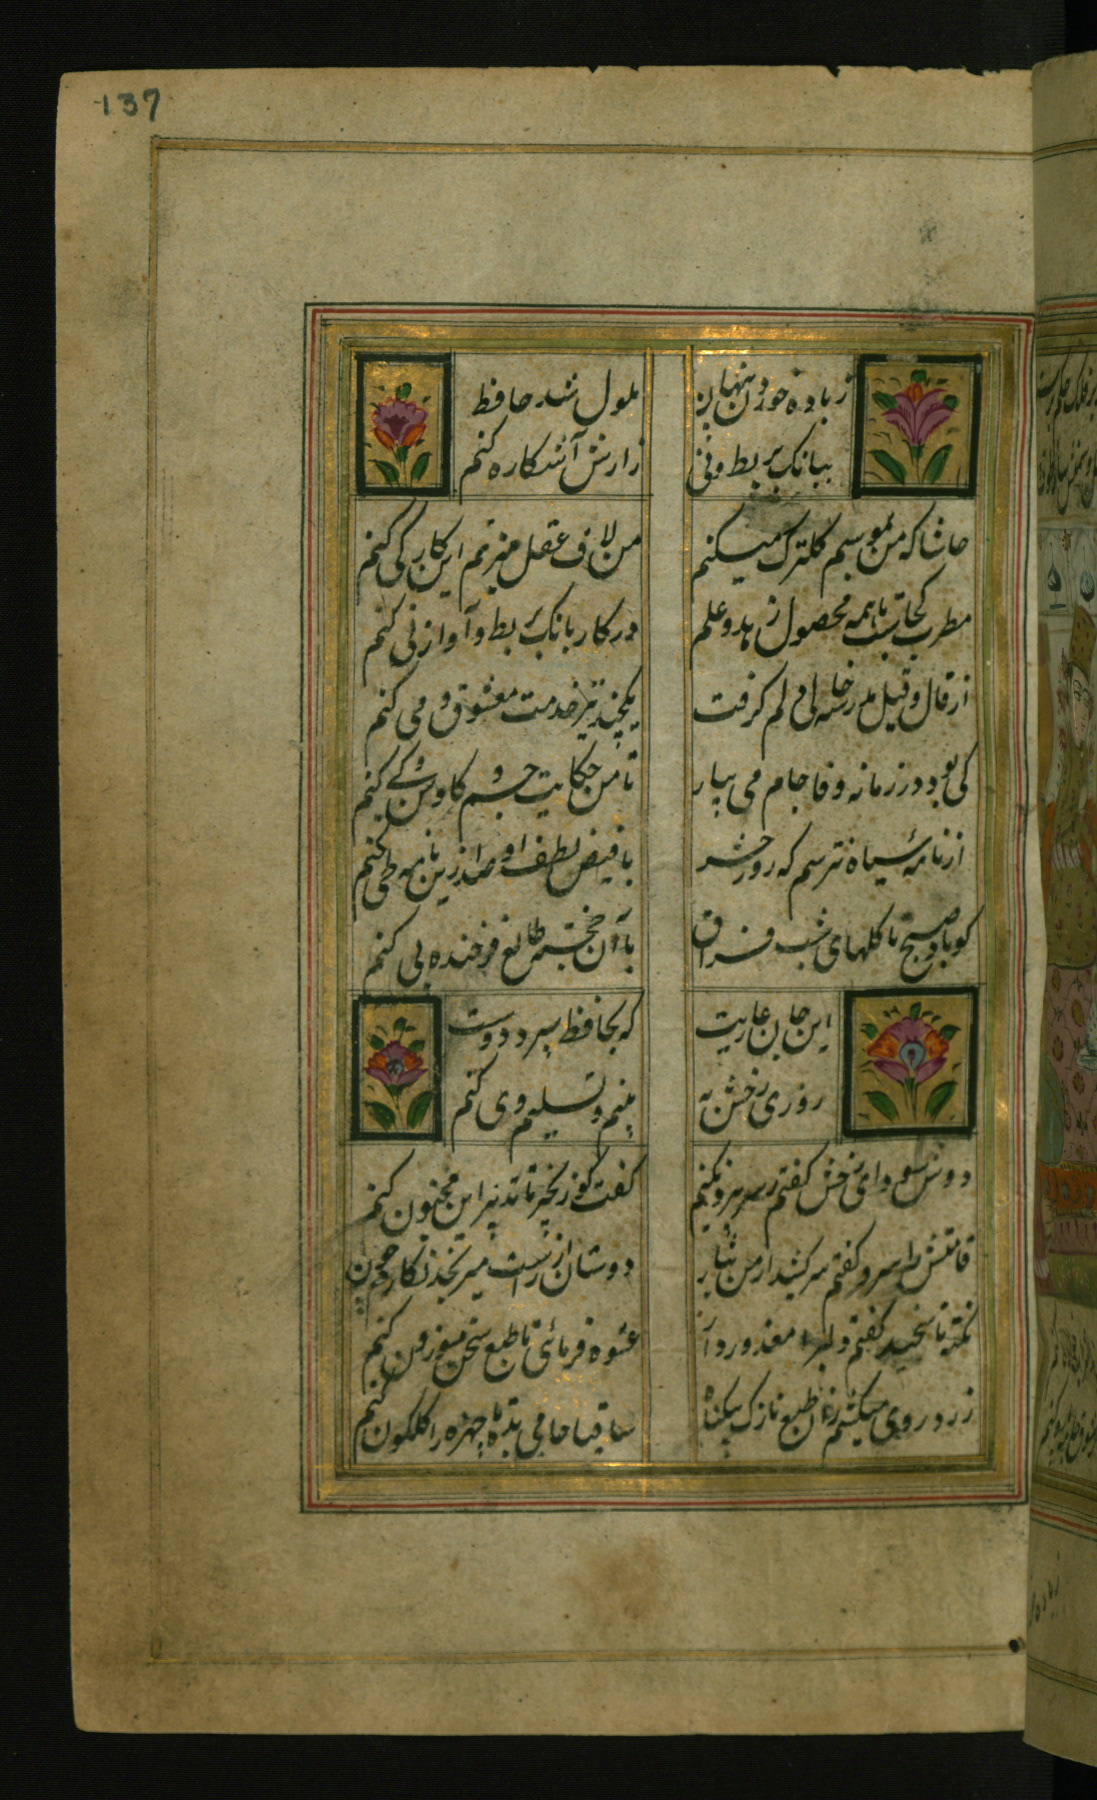 137
ز باده خوردن پنهان
ملول شد حافظ
ببانک بربط و نی
رازش آشکاره کنم
حاشا که من بموسم گل ترک می کنم
من لاف عقل میزنم این کار کی کنم
مطرب کجاست تا همه محصول زهد و علم
در کار بانک بربط و آواز نی کنم
از قال و قیل مدرسه حالی دلم گرفت
یکچند نیز خدمت معشوق و می کنم
کی بود در زمانه وفا جام می بیار
تا من حکایت جم و کاوس و کی کنم
از نامه سیاه نترسم که روز حشر
با فیض لطف او صد ازین نامه طی کنم
کو باد صبح تا گلهای شب فراق
با آن خجسته طالع فرخنده پی کنم
این جان عاریت
که بحافظ سپرد دوست
روزی رخش به
بینم و تسلیم وی کنم
دوش سودای رخش گفتم ز سر بیرون کنم
گفت کو زنجیر تا تدبیر این مجنون کنم
قامتش را سرو گفتم سر کشید از من
دوستان از راست میرنجد نگارم چون کنم
نکته ناسنجیده گفتم دلبرا معذور دار
عشوه فرمائی تا طبع سخن موزون کنم
زرد روی میکشم زان طبع نازک بیگناه
ساقیا جامی بده تا چهره را گلگون کنم